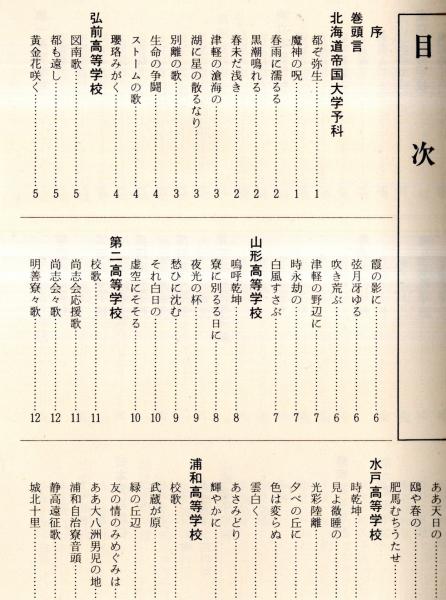 目次
序
巻頭言
北海道帝国大学予科
都ぞ弥生……1
魔神の呪……1
春雨に濡るる……2
黒潮鳴れる……2
春未だ浅き……2
津軽の滄海の……3
湖に星の散るなり……3
別離の歌……3
生命の争闘……4
ストームの歌……4
瓔珞みがく……4
弘前高等学校
図南歌……5
都も遠し……5
黄金花咲く……5
霞の影に……6
弦月冴ゆる……6
吹き荒ぶ……6
津軽の野辺に……7
時永劫の……7
白風すさぶ……7
山形高等学校
嗚呼乾坤……8
寮に別るる日に……8
夜光の杯……9
愁ひに沈む……9
それ白日の……10
虚空にそそる……10
第二高等学校
校歌……11
尚志会応援歌……11
尚志会々歌……12
明善寮々歌……12
ああ天日の
鴎や春の
肥馬むちうたせ
水戸高等学校
時乾坤の
見よ微睡の
光彩陸離
夕べの丘に
色は変らぬ
雲白く
あさみどり
輝やかに
浦和高等学校
校歌
武蔵が原
緑の丘辺
友の情のみめぐみは
ああ大八洲男児の地
浦和自治寮音頭
静高遠征歌
城北十里